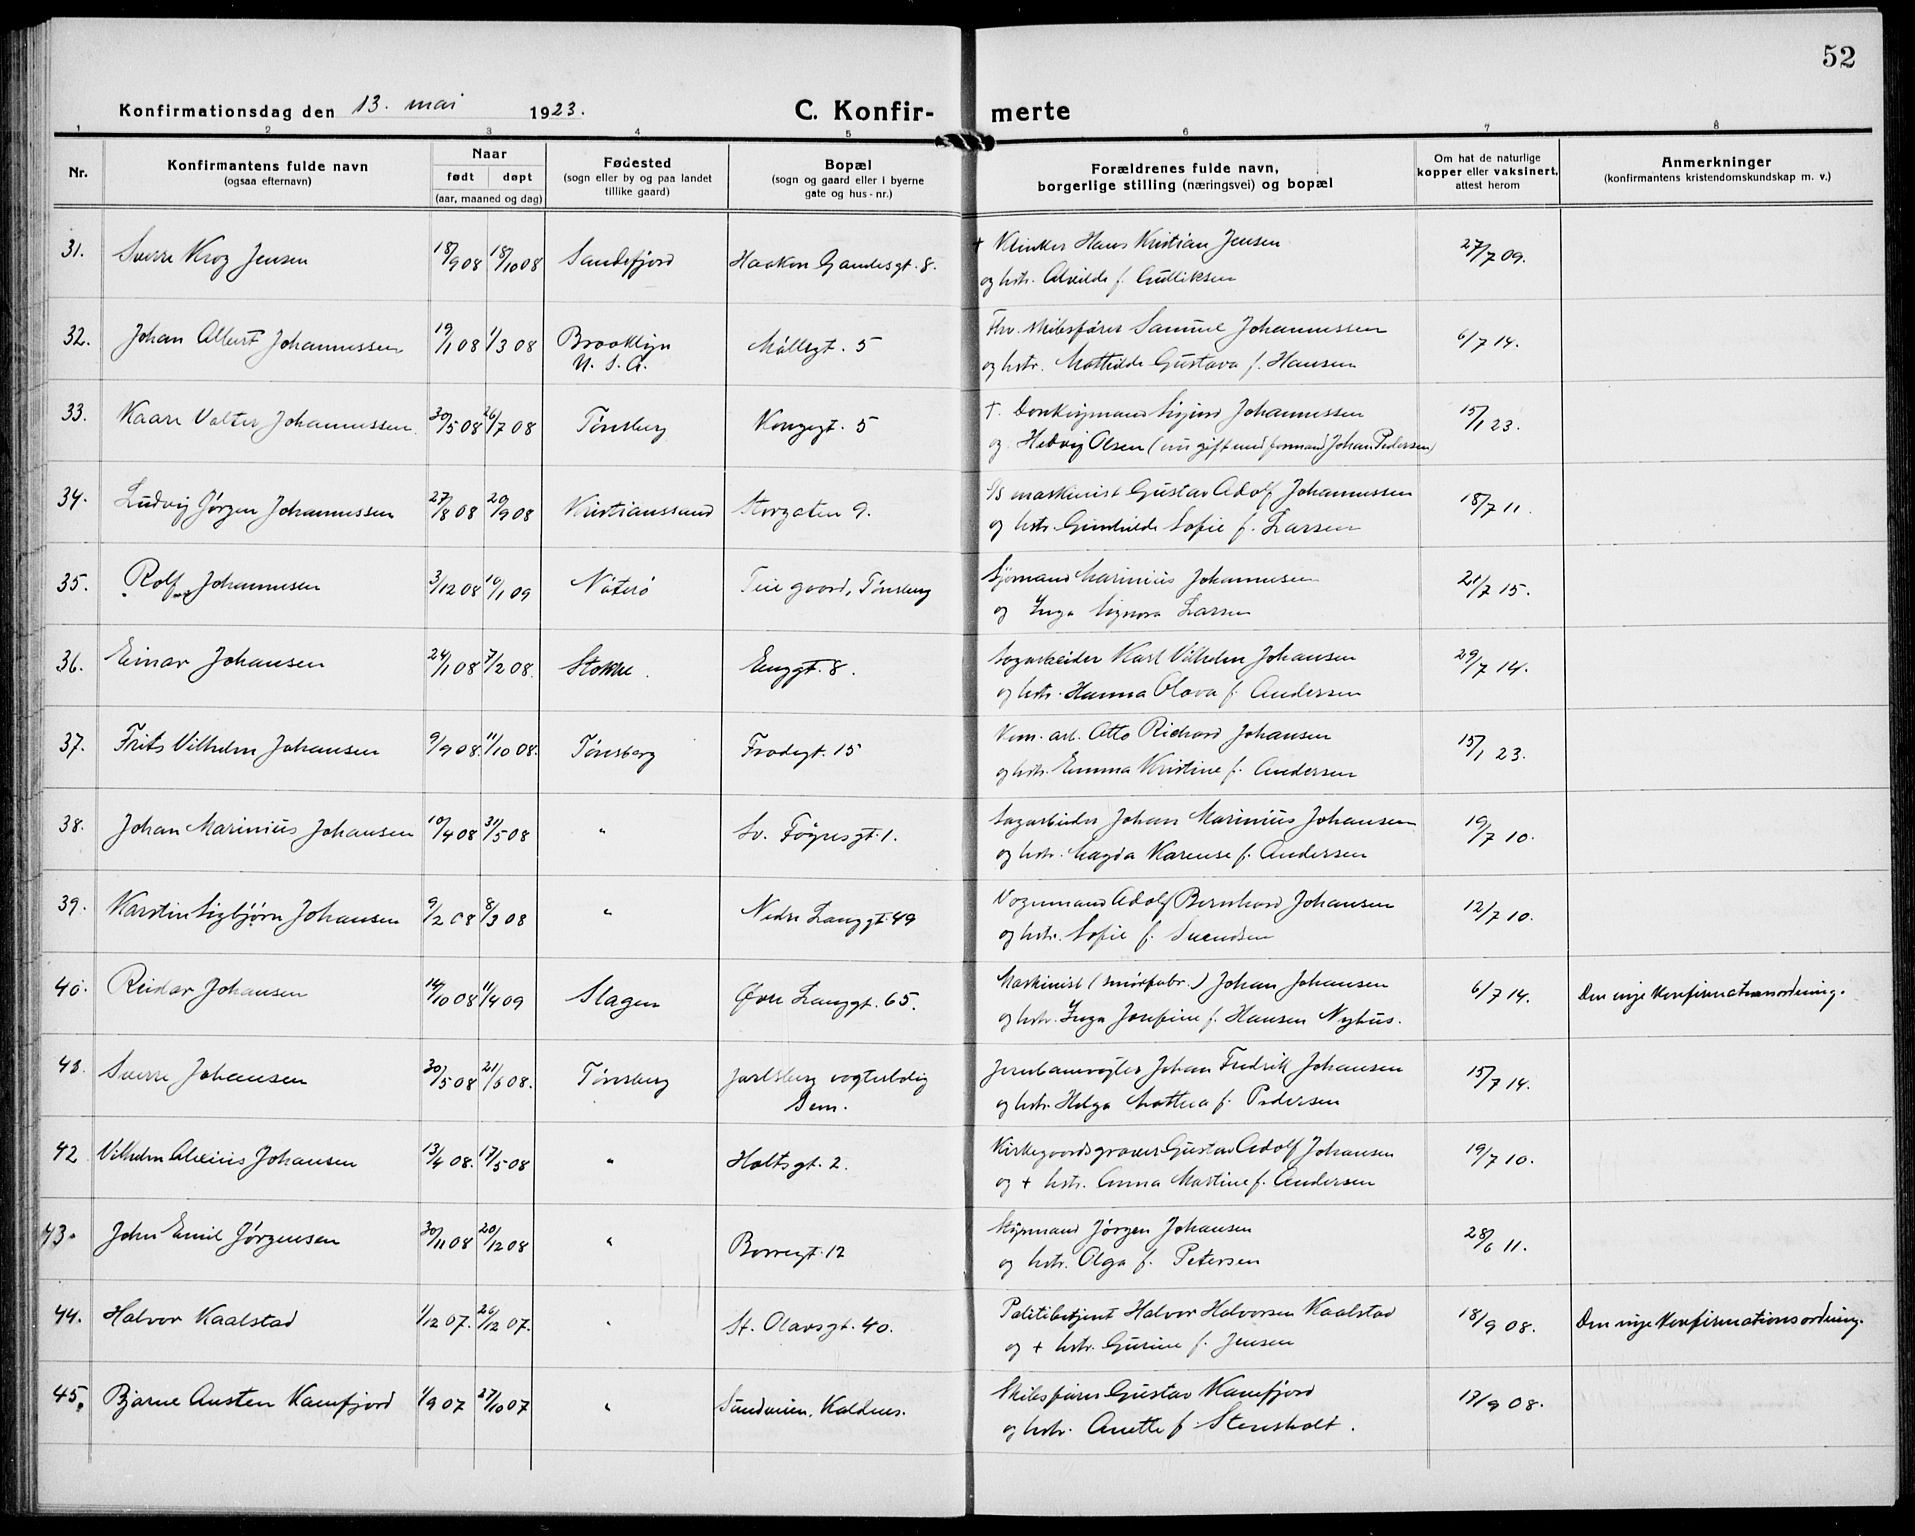 52
Konfirmationsdag den 13. mai 1923.
C. Konfir- merte
1 2 3 4 5 6 7 8
Nr.
Konfirmantens fulde navn
(ogsaa efternavn)
Naar
født døpt
(aar, maaned og dag)
Fødested
(sogn eller by og paa landet
tillike gaard)
Bopæl
(sogn og gaard eller i byerne
gate og hus-nr.)
Forældrenes fulde navn,
borgerlige stilling (næringsvei) og bopæl
Om hat de naturlige
kopper eller vaksinert,
attest herom
Anmerkninger
(konfirmantens kristendomskundskap m. v.)
31. Sverre Krog Jensen 18/9 08 18/10 08 Sandefjord Haakon Gamlesgt. 8. + Klinker Hans Kristian Jensen 27/7 09.
og hstr. Alvilde f. Gulliksen
32. Johan Albert Johannessen 19/1 08 1/3 08 Brooklyn Møllegt. 5 Fhv. skibsfører Samuel Johannessen 6/7 14.
U. S. A. og hstr. Mathilde Gustava f. Hansen
33. Kaare Valter Johannessen 30/5 08 26/7 08 Tønsberg Kongegt. 5 +. Donkeymand Sigurd Johannessen 15/1 23.
og Hedvig Olsen (nu gift med formand Johan Pedersen)
34. Ludvig Jørgen Johannessen 27/8 08 20/9 08 Kristianssund Storgaten 9. S/s maskinist Gustav Adolf Johannessen 18/7 11.
og hstr. Gunhilde Sofie f. Larsen
35. Rolf Johannesen 3/12 08 10/1 09 Nøterø Teie gaard, Tønsberg Sjømand Marinius Johannesen 21/7 15.
og Inga Signora Larsen
36. Einar Johansen 24/1 08 7/2 08. Stokke. Enggt. 8. Sagarbeider Karl Vilhelm Johansen 29/7 14.
og hstr. Hanna Olava f. Andersen
37. Frits Vilhelm Johansen 9/9 08. 11/10 08. Tønsberg Frodegt. 15 Kom. arb. Otto Richard Johansen 15/1 23.
og hstr. Emma Kristine f. Andersen
38. Johan Marinius Johansen 10/4 08 31/5 08 " Sv. Føynsgt. 1. Sagarbeider Johan Marinius Johansen 19/7 10.
og hstr. Magda Karense f. Andersen
39. Karstin Sigbjørn Johansen 9/2 08 8/3 08 " Nedre Langgt. 49 Vognmand Adolf Bernhard Johansen 12/7 10.
og hstr. Sofie f. Svendsen
40. Reidar Johansen 14/10 08 11/4 09 Slagen Øvre Langgt. 65. Maskinist (smørfabr.) Johan Johansen 6/7 14. Den nye Konfirmationsordning.
og hstr. Inga Josefine f. Hansen Nyhus.
Sverre Johansen 30/5 08 21/6 08. Tønsberg Jarlsberg vogterbolig Jernbanevogter Johan Fredrik Johansen 15/7 14.
Sem. og hstr. Helga Mathea f. Pedersen
42 Vilhelm Alexius Johansen 13/4 08. 17/5 08 " Holtsgt. 2. Kirkegaardsgraver Gustav Adolf Johansen 19/7 10.
og + hstr. Anna Martine f. Andersen
43. John Emil Jørgensen 30/11 08 20/12 08 " Borregt. 12 Styrmand Jørgen Johansen 28/6 11.
og hstr. Olga f. Petersen
44. Halvor Kaalstad 1/12 07. 26/12 07. " St. Olavsgt. 40. Politibetjent Halvor Halvorsen Kaalstad 18/9 08. Den nye Konfirmationsordning.
og + hstr. Gurine f. Jensen
45. Bjarne Austen Kamfjord 1/9 07 27/10 07 " Kaldnes. Skibsfører Gustav Kamfjord 17/9 08.
og hstr. Anette f. Stensholt.